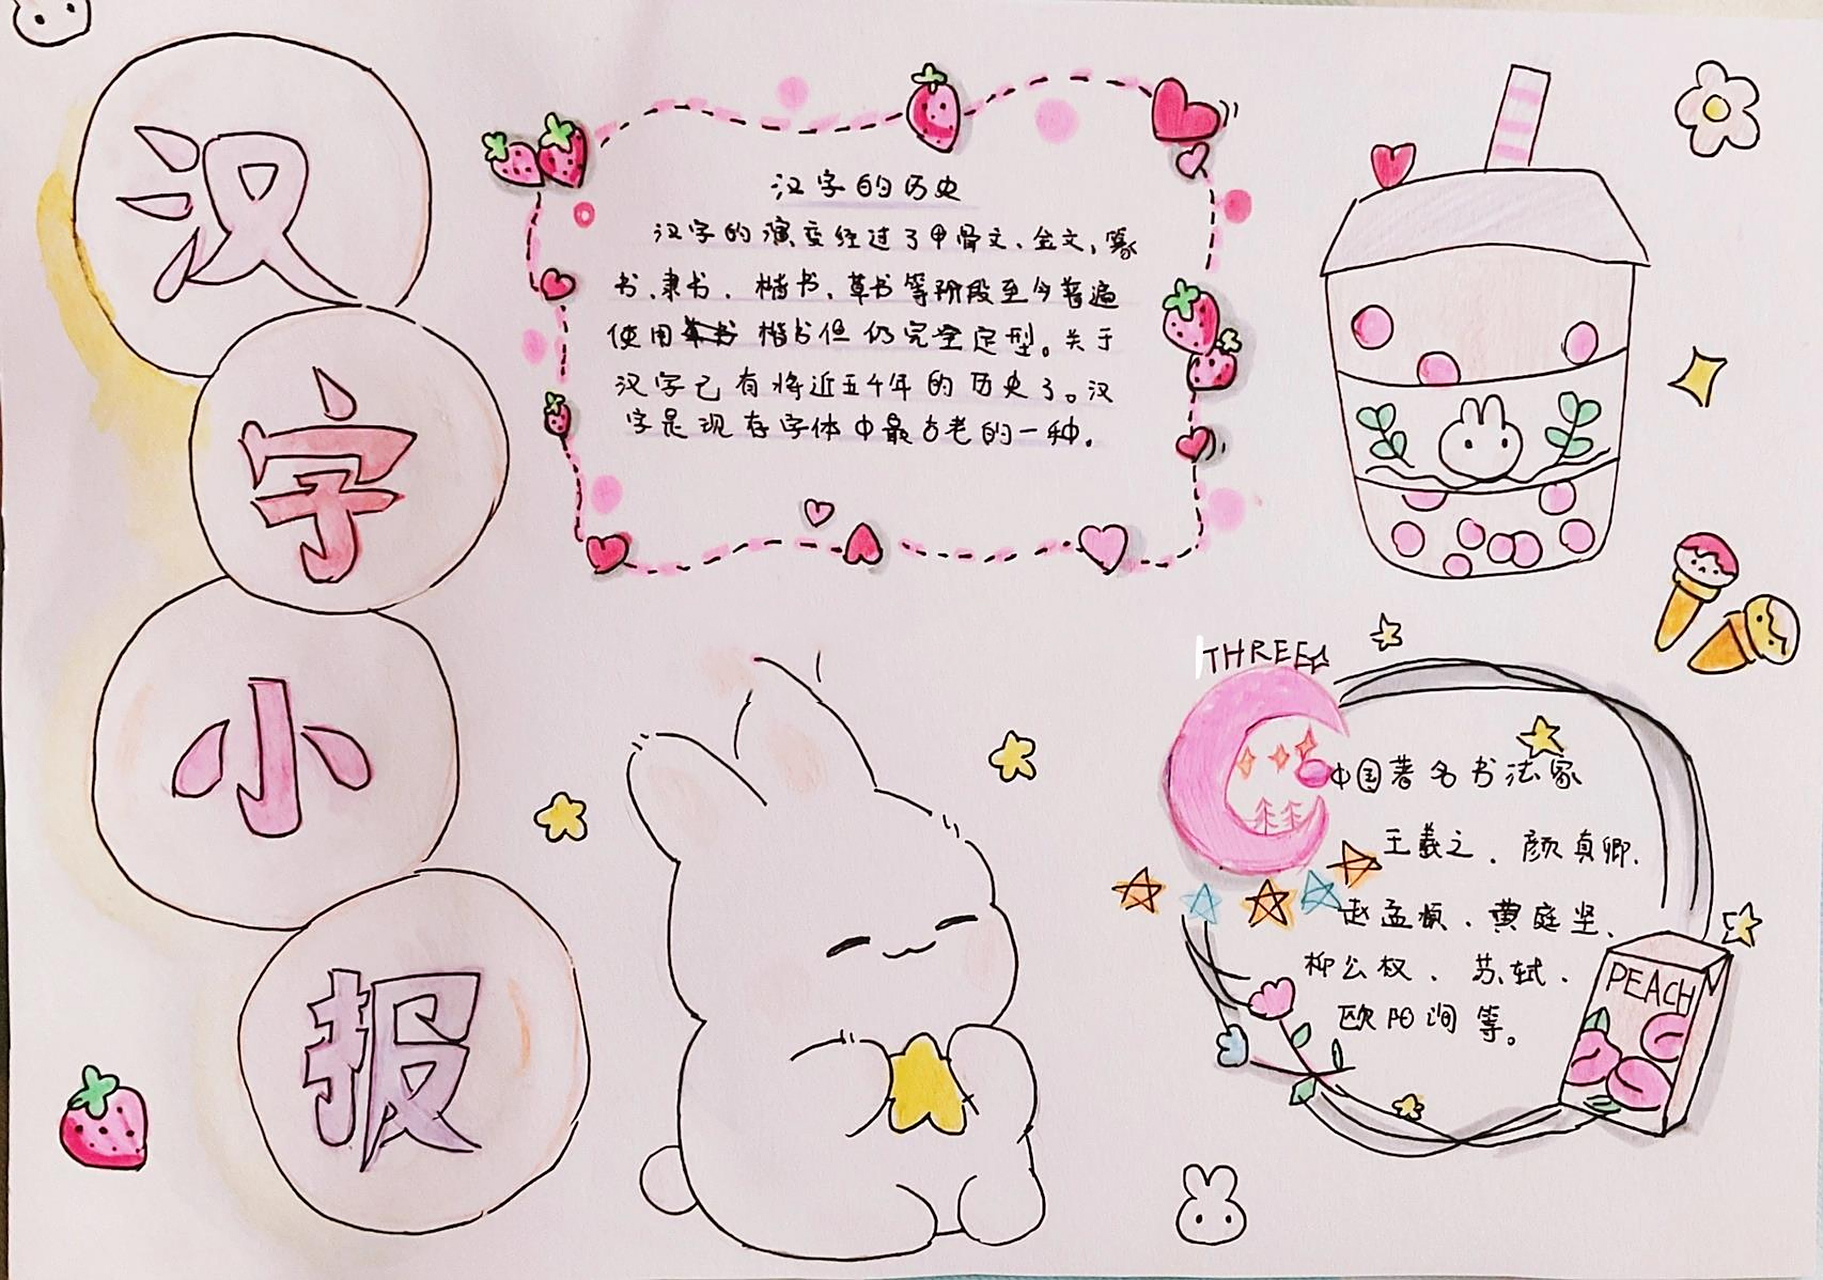 汉
字
小
报
汉字的历史
汉字的演变经过了甲骨文、金文、篆
书、隶书、楷书、草书等阶段至今普遍
使用楷书但仍完全定型。关于
汉字已有将近五千年的历史了。汉
字是现存字体中最古老的一种。
THREE
中国著名书法家
王羲之、颜真卿、
赵孟頫、黄庭坚、
柳公权、苏轼、
欧阳询等。
PEACH